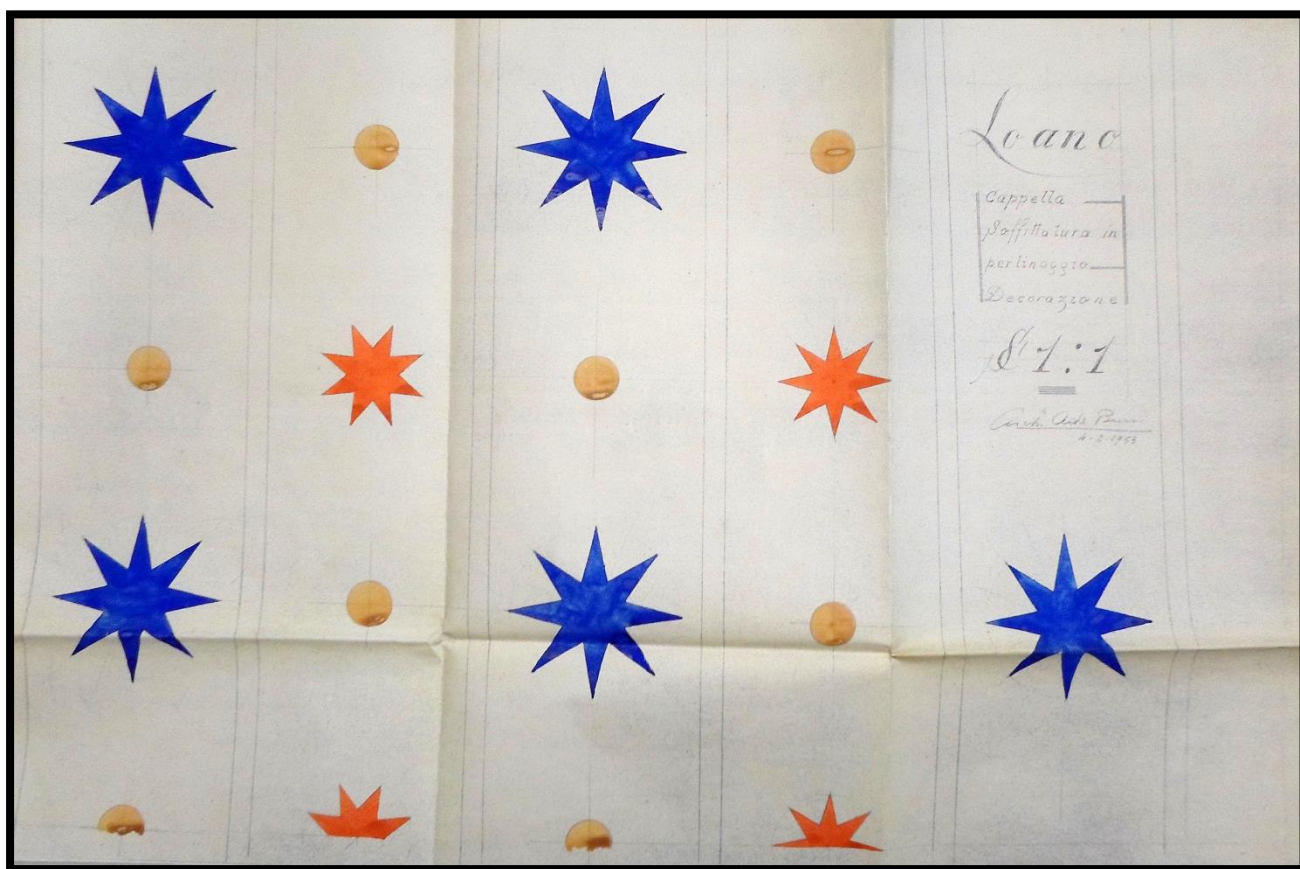 Loano
Cappella
Soffittatura in
perlinaggio
Decorazione
S 1:1
4-2-1953